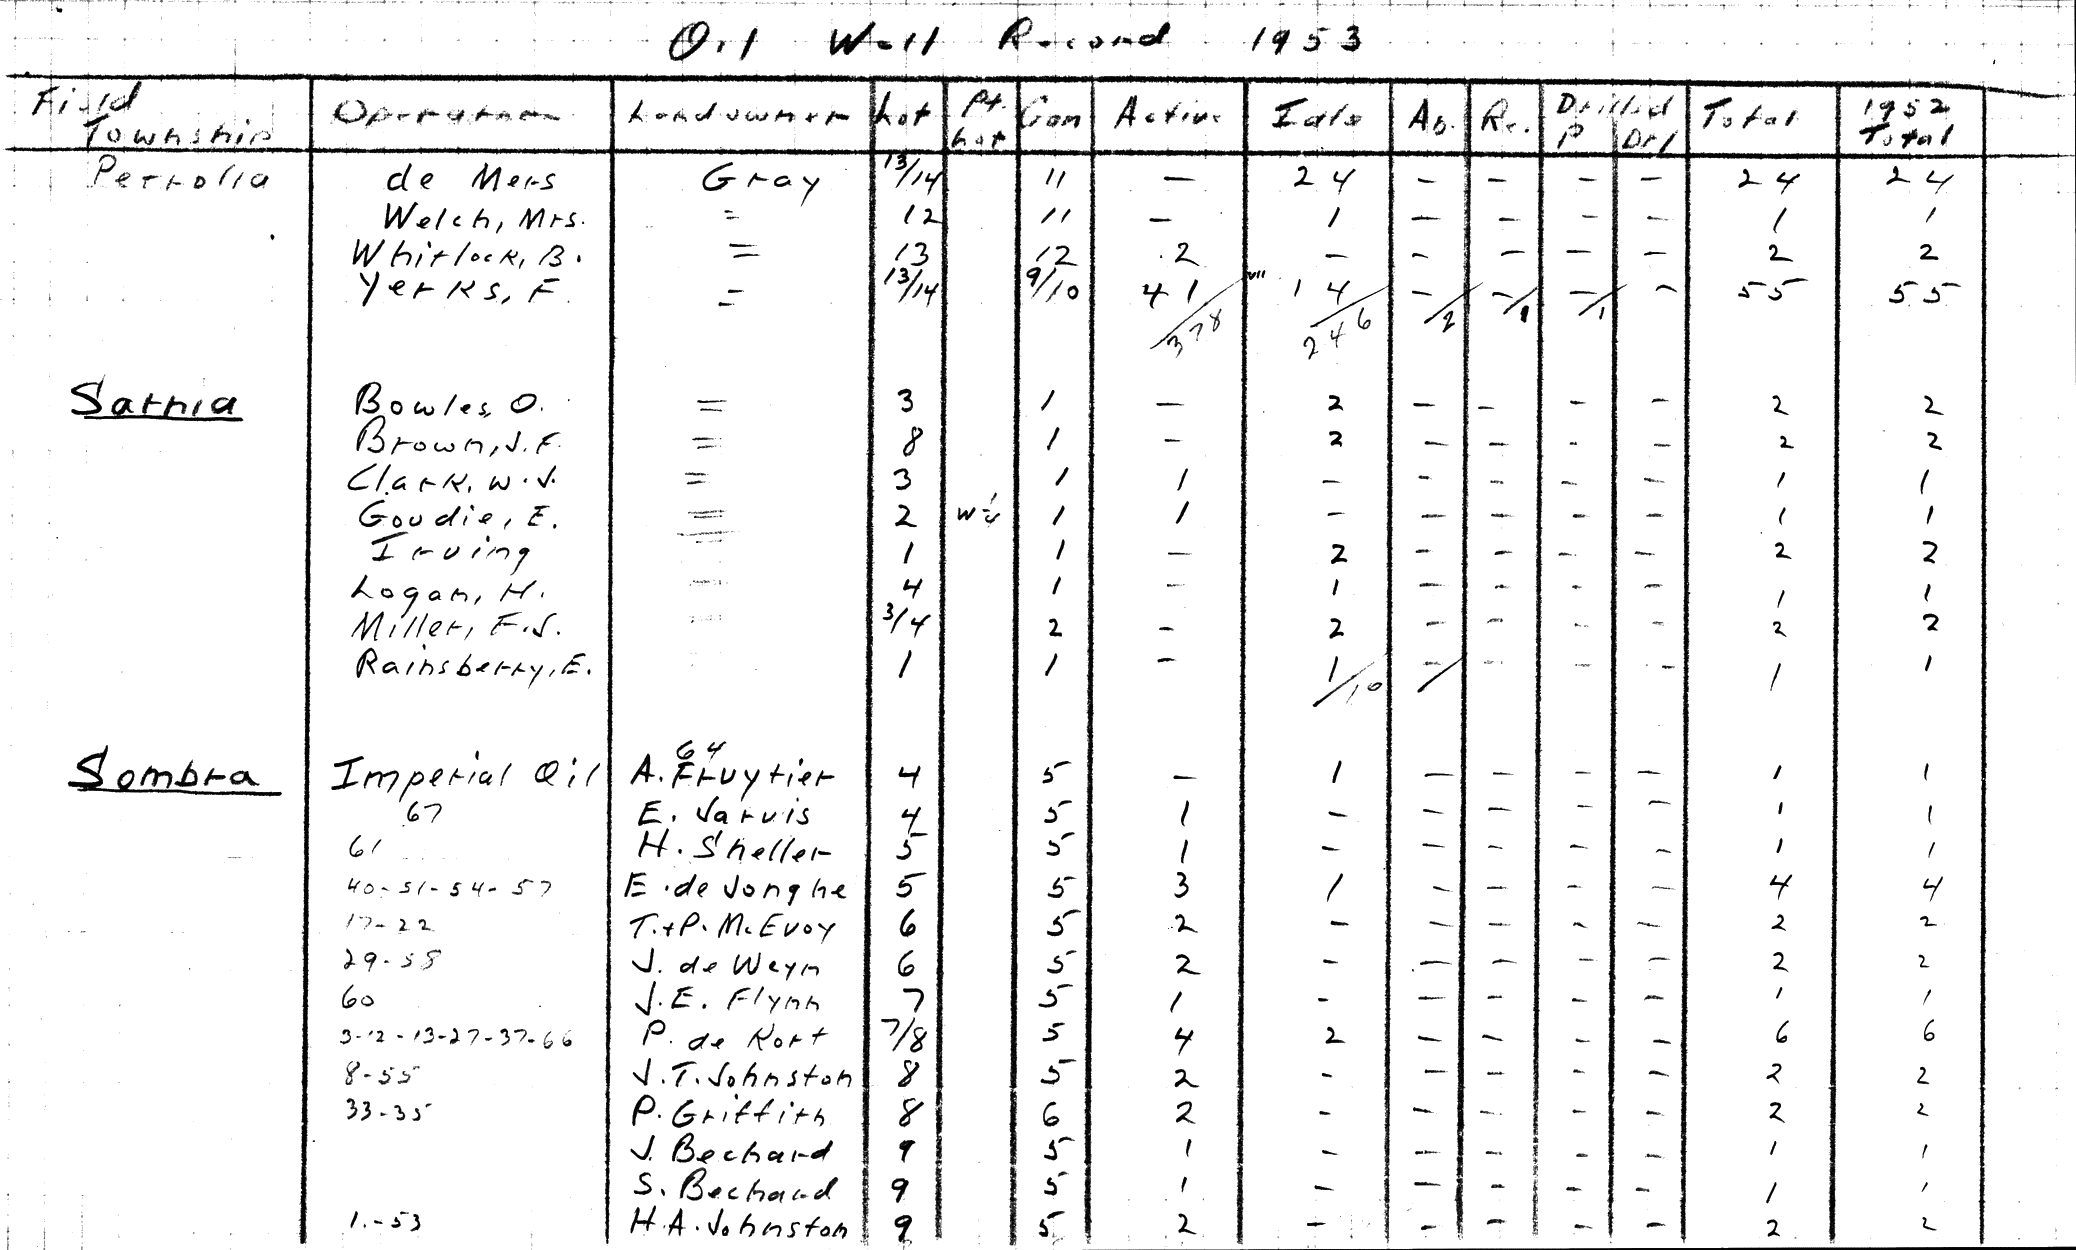 Oil Well Record 1953
Field Township Operator Landowner Lot Pt. Lot Con Active Idle Ab. Re. Drilled P Drl Total 1952 Total
Petrolia de Mers Gray 13/14 11 — 24 - - - - 24 24
Welch, Mrs. = 12 11 — 1 — - - - 1 1
Whitlock, B. = 13 12 2 — - - — - 2 2
Yerks, F. = 13/14 9/10 41 14 — — — - 55 55
378 246 2 1 1
Sarnia Bowles, O. = 3 1 — 2 — - - - 2 2
Brown, J. F. = 8 1 - 2 - - - - 2 2
Clark, W. J. = 3 1 1 - - - - - 1 1
Goudie, E. = 2 W ¼ 1 1 - - - - - 1 1
Irving = 1 1 — 2 - - - - 2 2
Logan, H. = 4 1 - 1 - - - - 1 1
Miller, F. J. = 3/4 2 - 2 - - - - 2 2
Rainsberry, E. 1 1 - 1 - - - - 1 1
10
64
Sombra Imperial Oil A. Fruytier 4 5 — 1 — - - - 1 1
67 E. Jarvis 4 5 1 - - - - - 1 1
61 H. Sheller 5 5 1 - - - - - 1 1
40-51-54-57 E. de Jonghe 5 5 3 1 - - - - 4 4
17-22 T. + P. McEvoy 6 5 2 - - - - - 2 2
29-58 J. de Weyn 6 5 2 - - - - - 2 2
60 J. E. Flynn 7 5 1 - - - - - 1 1
3-12-13-27-37-66 P. de Kort 7/8 5 4 2 - - - - 6 6
8-55 J. T. Johnston 8 5 2 - - - - - 2 2
33-35 P. Griffith 8 6 2 - - - - - 2 2
J. Bechard 9 5 1 - - - - - 1 1
S. Bechard 9 5 1 - - - - - 1 1
1.-53 H. A. Johnston 9 5 2 - - - - - 2 2